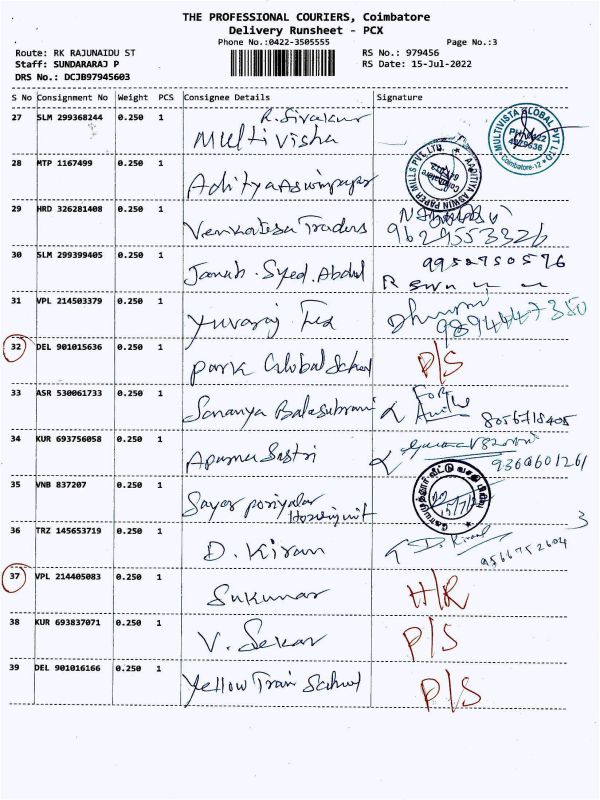 THE PROFESSIONAL COURIERS, Coimbatore
Delivery Runsheet - PCX
Phone No.:0422-3505555 Page No.:3
Route: RK RAJUNAIDU ST RS No.: 979456
Staff: SUNDARARAJ P RS Date: 15-Jul-2022
DRS No.: DCJB97945603
S No Consignment No Weight PCS Consignee Details Signature
27 SLM 299368244 0.250 1 R. Sivakur
Multivisha
MULTIVISTA GLOBAL PVT LTD
Coimbatore-12
28 MTP 1167499 0.250 1
Adityaaswinpaper
AADITYA ASWIN PAPER MILLS PVT. LTD.
Coimbatore
29 HRD 326281408 0.250 1
Venkatesa Traders 9629553326
30 SLM 299399405 0.250 1 9952750576
Janab. Syed. Abdul
31 VPL 214503379 0.250 1
Yuvaraj Tex 9894447350
32 DEL 901015636 0.250 1
Park Global School P/S
33 ASR 530061733 0.250 1
Sananya Balasubrami 8056718405
34 KUR 693756058 0.250 1
Aparna Sastri 9360601261
35 VNB 837207 0.250 1
Sayar poriyalar
Housing unit
15/7/22
36 TRZ 145653719 0.250 1 3
D. Kiran D. Kiran
9566752604
37 VPL 214405083 0.250 1
Sukumar H/R
38 KUR 693837071 0.250 1
V. Sekar P/S
39 DEL 901016166 0.250 1
Yellow Train School P/S